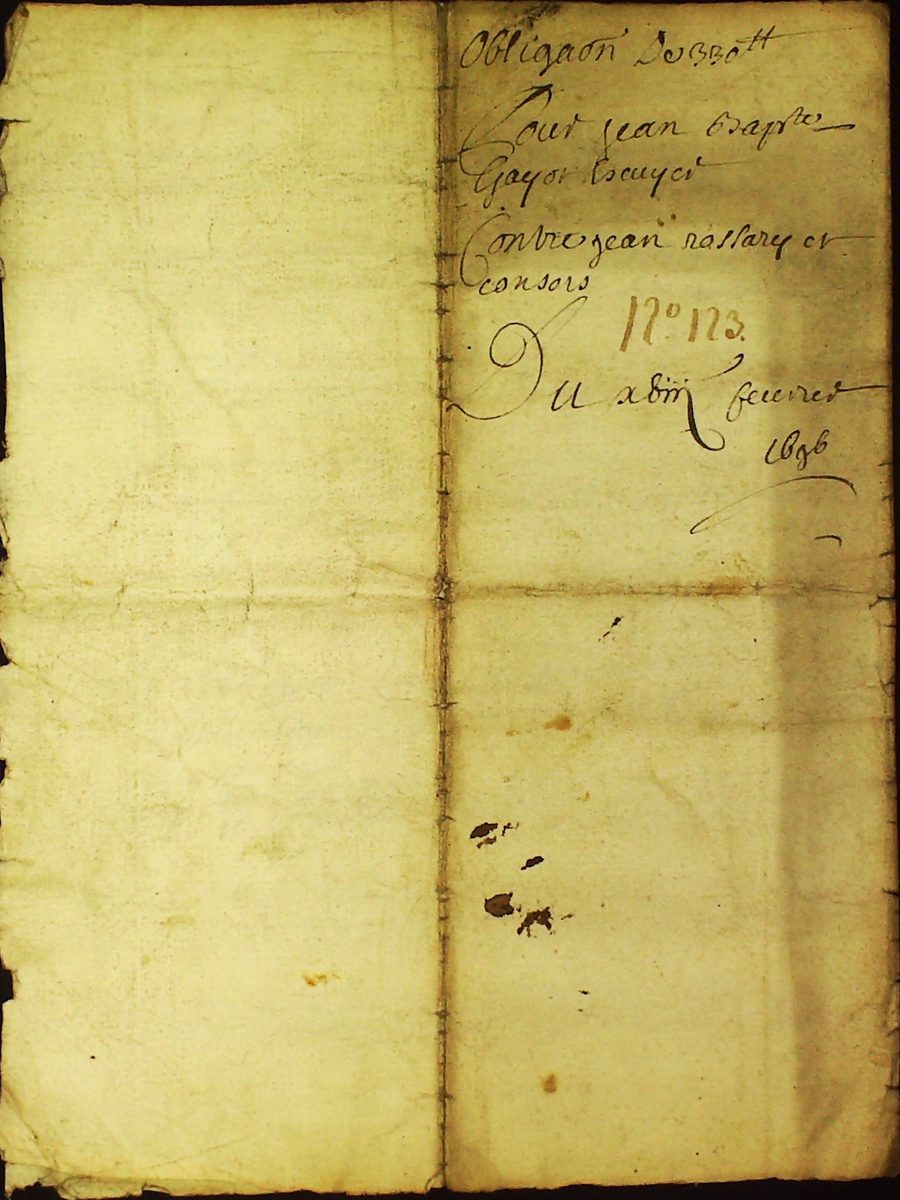 Obligaon De 330tt
Pour jean baptte
Gayot Escuyer
Contre jean rassary et
consors
No 123.
Du xviii feuvrier
1696